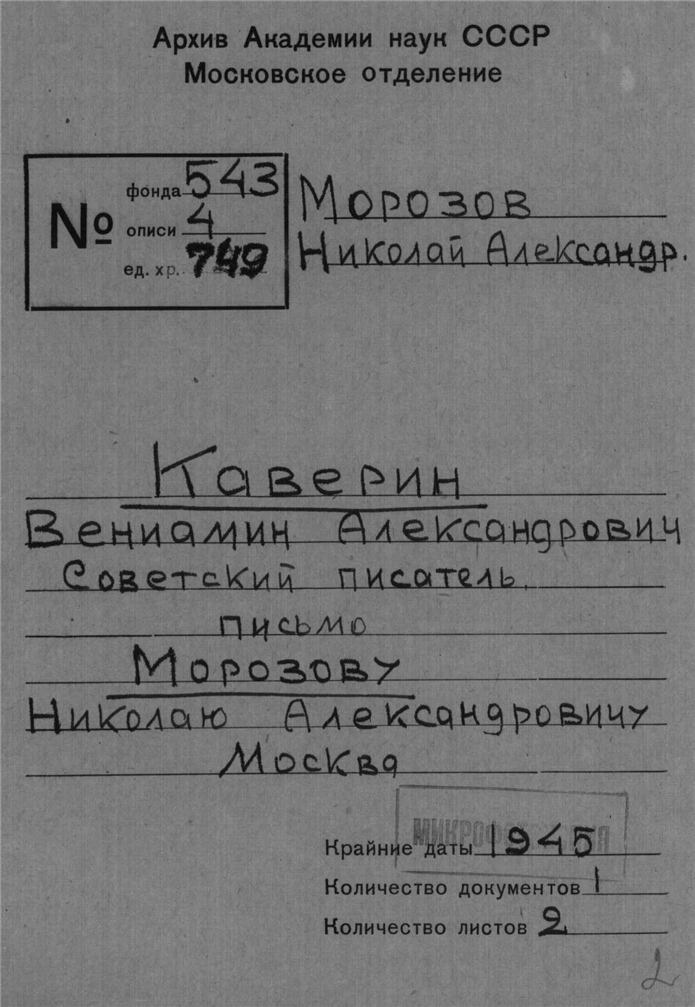 Архив Академии наук СССР
Московское отделение
№
фонда 543
описи 4
ед. хр. 749
Морозов
Николай Александр.
Каверин
Вениамин Александрович
Советский писатель.
письмо
Морозову
Николаю Александровичу
Москва
Крайние даты 1945
Количество документов 1
Количество листов 2
2